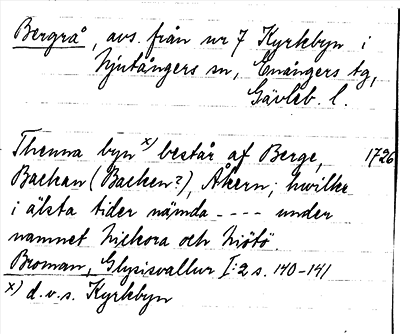 Bergrå, avs. från nr 7 Kyrkbyn i
Njutångers sn, Enångers tg,
Gävleb. l.
Thenna byn x) består af Berge, 1726
Backan (Backen?), Åkern; hwilke
i älsta tider nämda - - - - under
namnet Niekora och Niötö.
Broman, Glysisvallur I:2 s. 140-141
x) d.v.s. Kyrkbyn